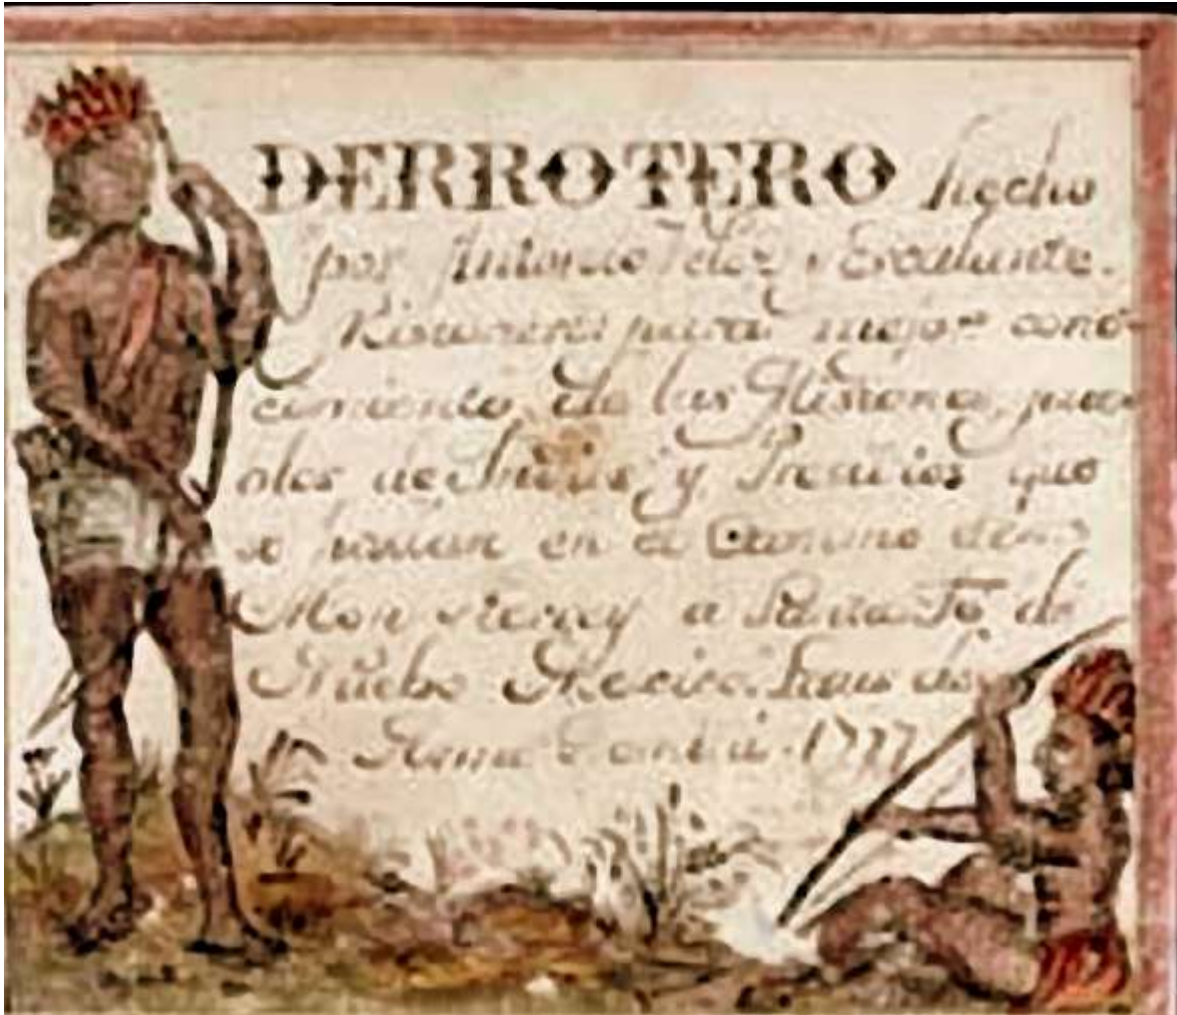 DERROTERO hecho
por Antonio Velez y Escalante.
para mejor cono-
cimiento de las Misiones, pue-
blos de Indios y Presidios que
se hallan en el Camino de
Monterrey a Santa Fe de
Nuebo Mexico.
1777